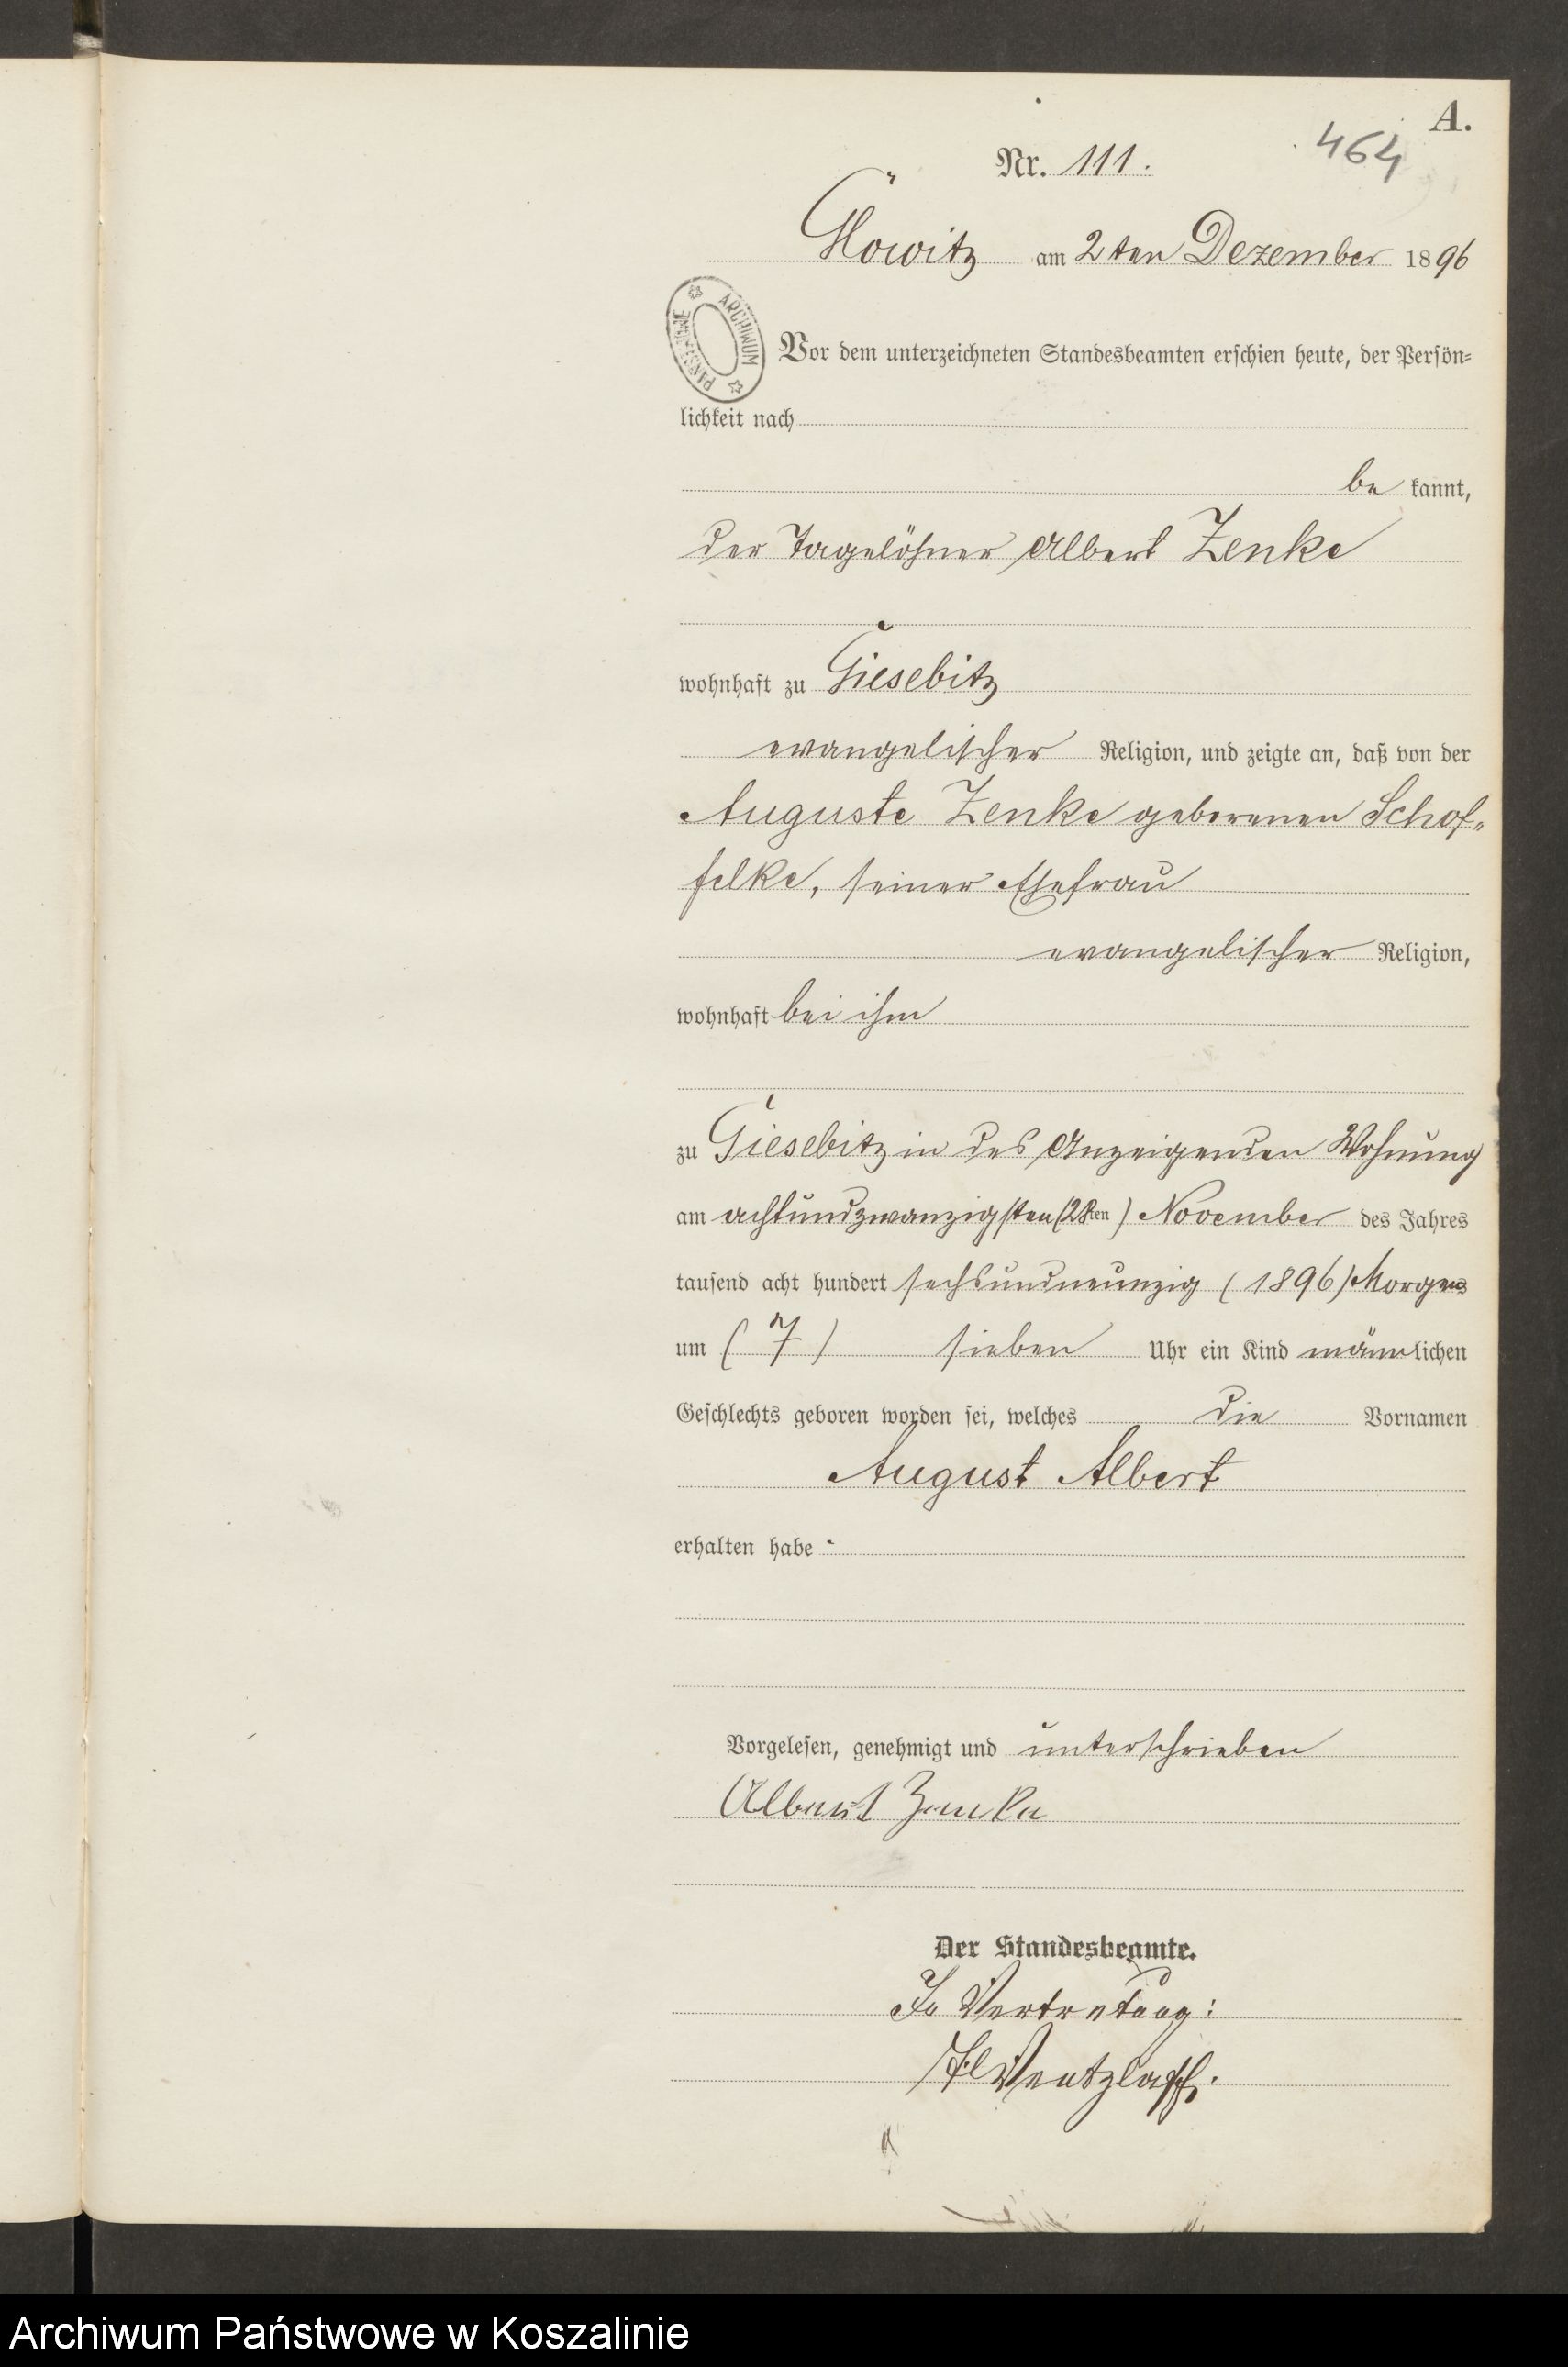 A.
464
Nr. 111.
Glowitz am 2ten Dezember 1896
ARCHIWUM PAŃSTWOWE
Vor dem unterzeichneten Standesbeamten erschien heute, der Persön=
lichkeit nach
be kannt,
der Tagelöhner Albert Zenke
wohnhaft zu Giesebitz
evangelischer Religion, und zeigte an, daß von der
Auguste Zenke geborenen Schof=
felke, seiner Ehefrau
evangelischer Religion,
wohnhaft bei ihm
zu Giesebitz in des Anzeigenden Wohnung
am achtundzwanzigsten (28ten) November des Jahres
tausend acht hundert sechsundneunzig (1896) Morgens
um (7) sieben Uhr ein Kind männlichen
Geschlechts geboren worden sei, welches die Vornamen
August Albert
erhalten habe
Vorgelesen, genehmigt und unterschrieben
Albert Zenke
Der Standesbeamte.
In Vertretung:
Wentzlaff.
Archiwum Państwowe w Koszalinie